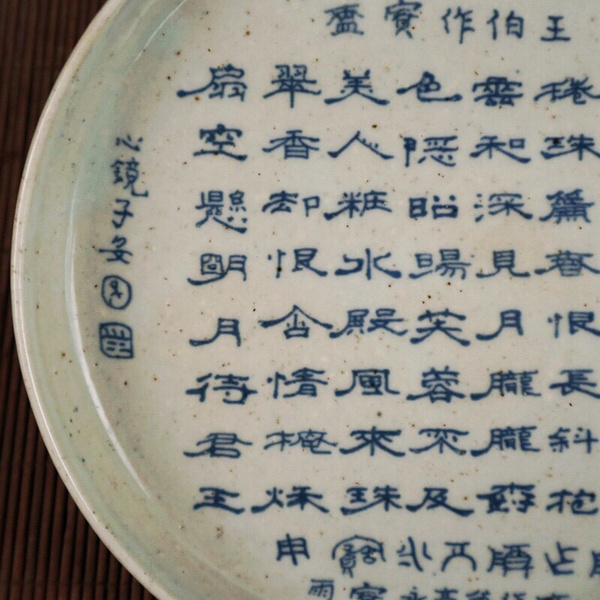 王伯作寶
捲珠簾春恨長斜抱
雲和深見月朧朧樹
色隱昭暘芙蓉不及
美人粧水殿風來珠
翠香却恨含情掩秋
扇空懸明月待君王
心鏡子